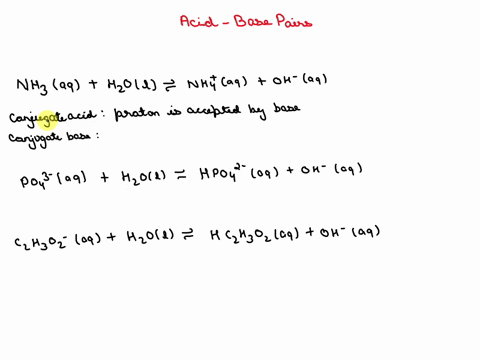 Acid - Base Pairs
NH₃ (aq) + H₂O(l) ⇌ NH₄⁺ (aq) + OH⁻ (aq)
Conjugate acid : proton is accepted by base
Conjugate base :
PO₄³⁻ (aq) + H₂O(l) ⇌ HPO₄²⁻ (aq) + OH⁻ (aq)
C₂H₃O₂⁻ (aq) + H₂O(l) ⇌ HC₂H₃O₂ (aq) + OH⁻ (aq)